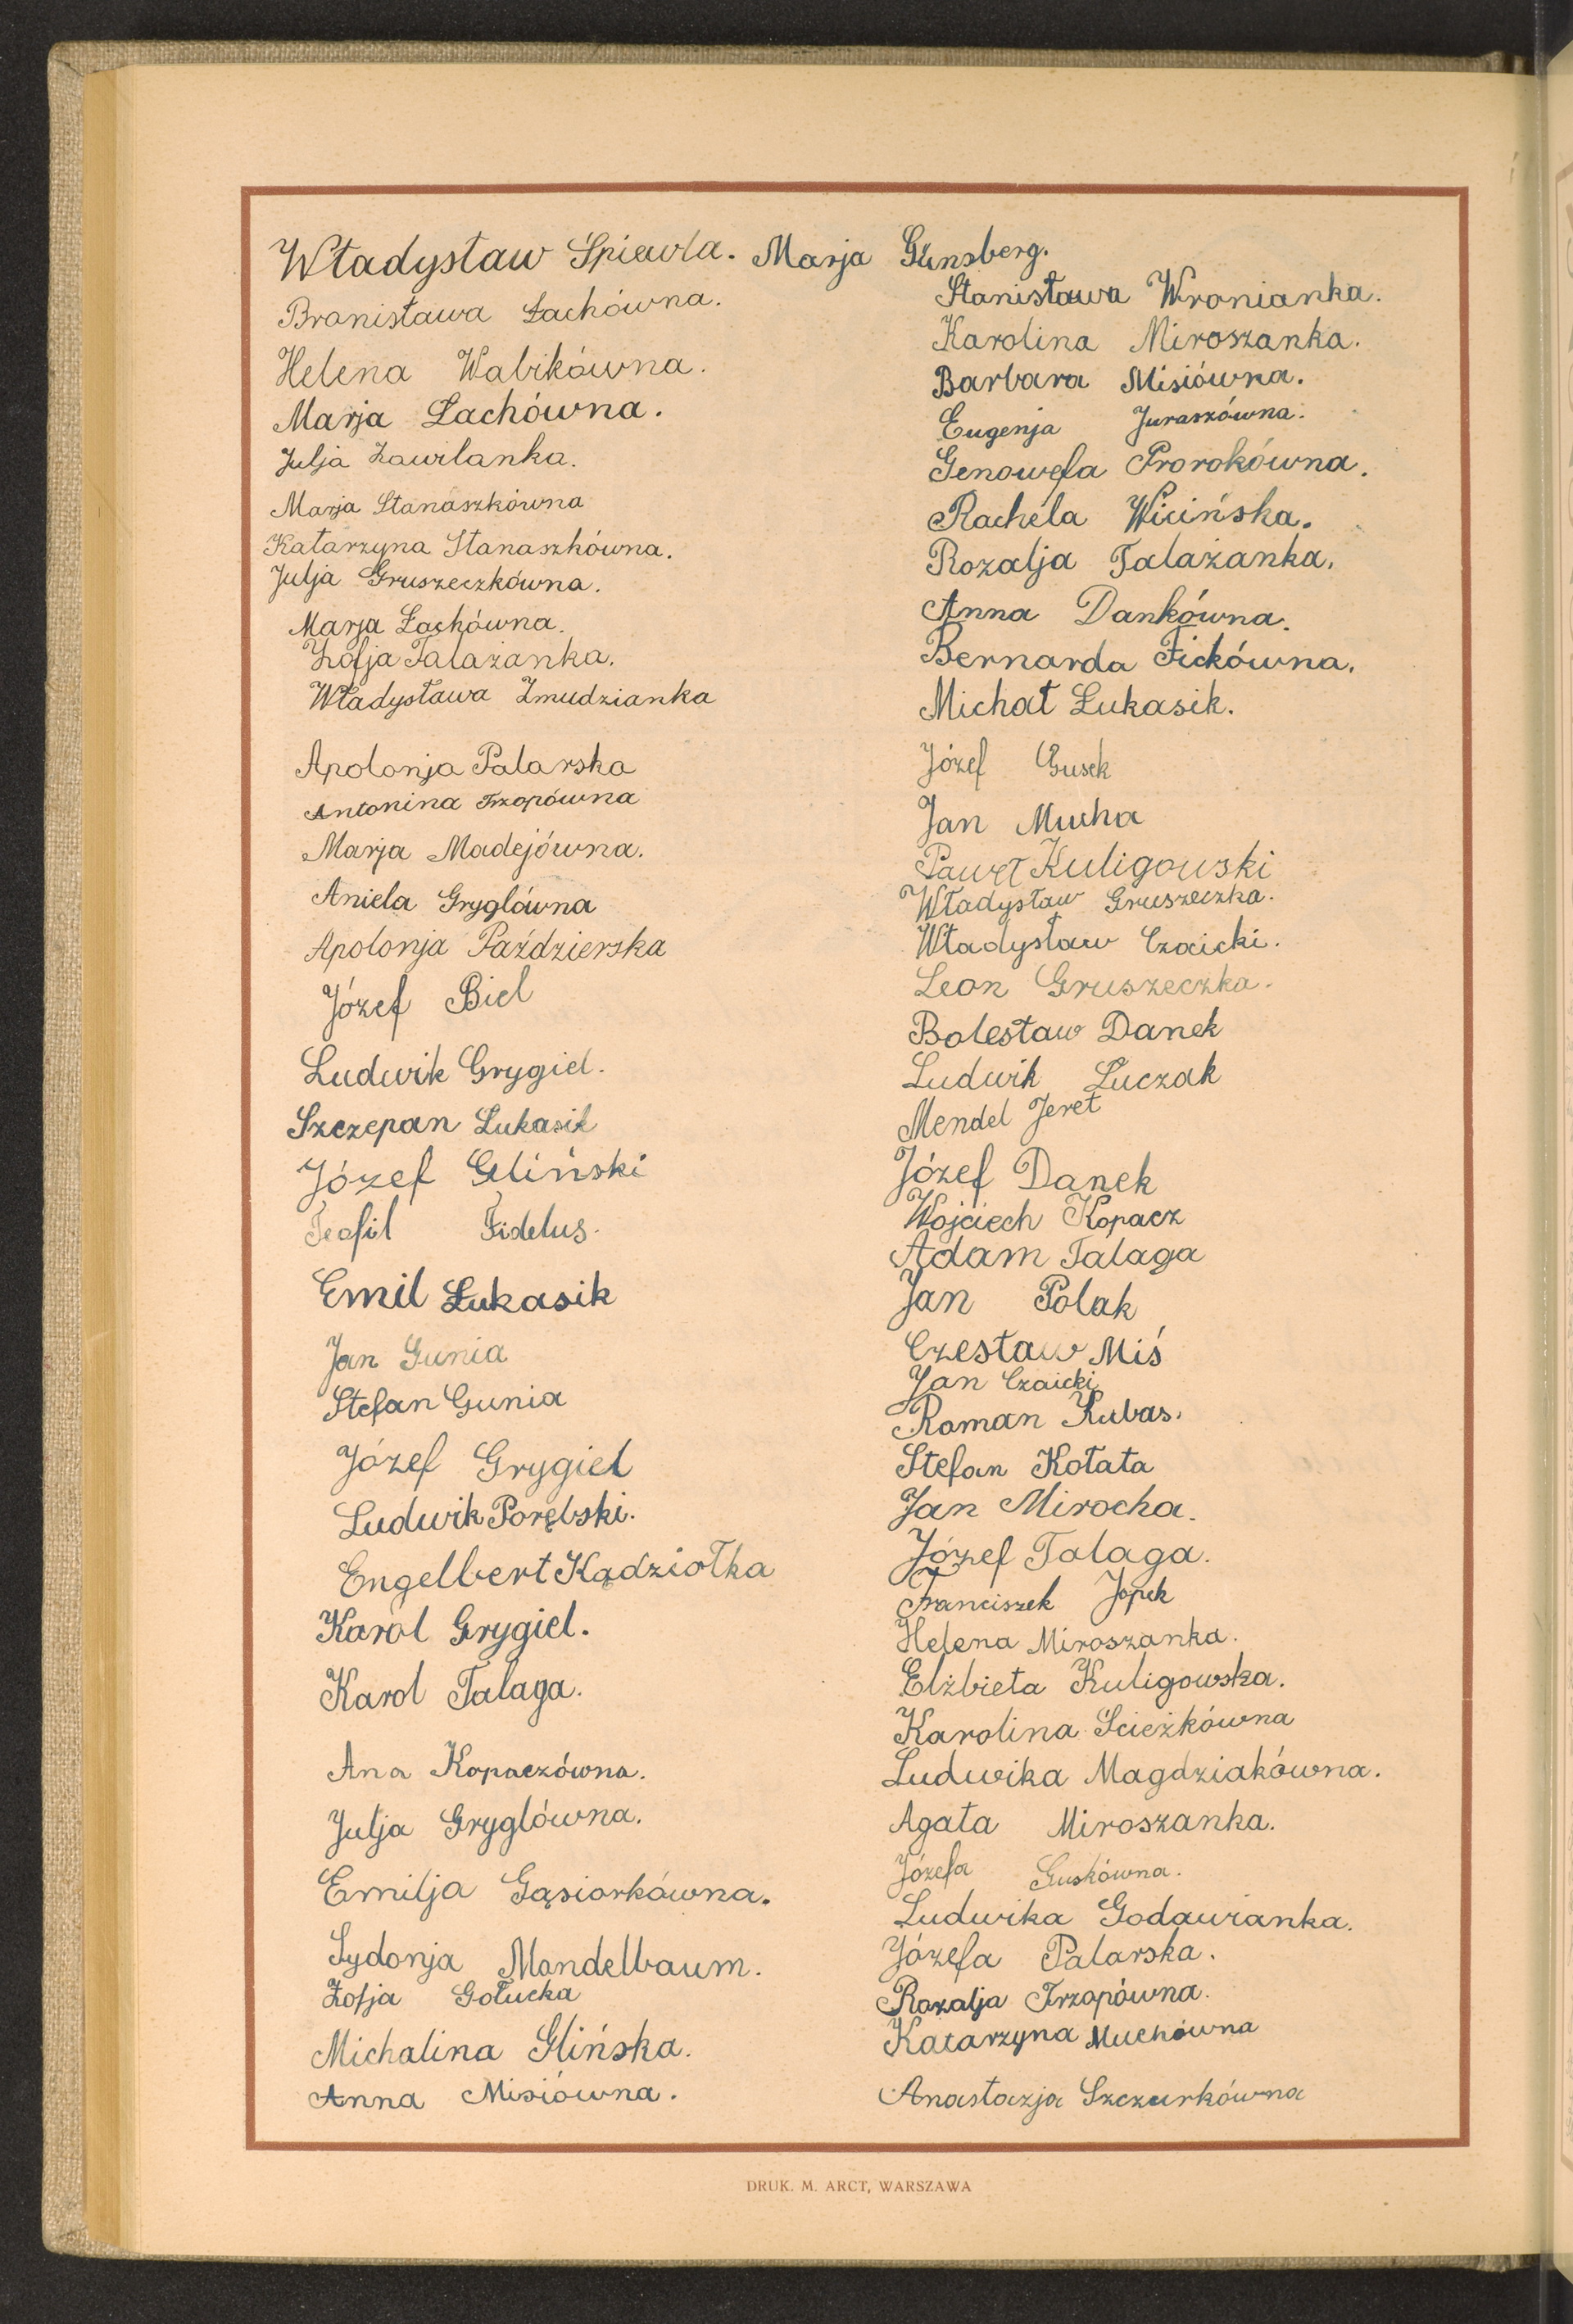 Władysław Śpiewla. Marja Günsberg.
Bronisława Łachówna.
Helena Wabikówna.
Marja Łachówna.
Julja Zawilanka.
Marja Stanaszkówna
Katarzyna Stanaszkówna.
Julja Gruszeczkówna.
Marja Łachówna.
Zofja Talażanka.
Władysława Żmudzianka
Apolonja Palarska
Antonina Trzopówna
Marja Madejówna.
Aniela Gryglówna
Apolonja Paździerska
Józef Biel
Ludwik Grygiel.
Szczepan Łukasik
Józef Gliński
Teofil Fidelus.
Emil Łukasik
Jan Gunia
Stefan Gunia
Józef Grygiel
Ludwik Porębski.
Engelbert Kądziołka
Karol Grygiel.
Karol Talaga.
Ana Kopaczówna.
Julja Gryglówna.
Emilja Gąsiorkówna.
Sydonja Mandelbaum.
Zofja Gołucka
Michalina Glińska.
Anna Misiówna.
Stanisława Wronianka.
Karolina Miroszanka.
Barbara Misiówna.
Eugenja Juraszówna.
Genowefa Prorokówna.
Rachela Wicińska.
Rozalja Talażanka.
Anna Dankówna.
Bernarda Fickówna.
Michał Łukasik.
Józef Gusek
Jan Mucha
Paweł Kuligowski
Władysław Gruszeczka.
Władysław Czaicki.
Leon Gruszeczka.
Bolesław Danek
Ludwik Łuczak
Mendel Jeret
Józef Danek
Wojciech Kopacz
Adam Talaga
Jan Polak
Czesław Miś
Jan Czaicki
Roman Kubas.
Stefan Kołata
Jan Mirocha.
Józef Talaga.
Franciszek Jopek
Helena Miroszanka.
Elżbieta Kuligowska.
Karolina Ścieżkówna
Ludwika Magdziakówna.
Agata Miroszanka.
Józefa Guskówna.
Ludwika Godawianka.
Józefa Palarska.
Rozalja Trzopówna.
Katarzyna Muchówna
Anastazja Szczurkówna
DRUK. M. ARCT, WARSZAWA